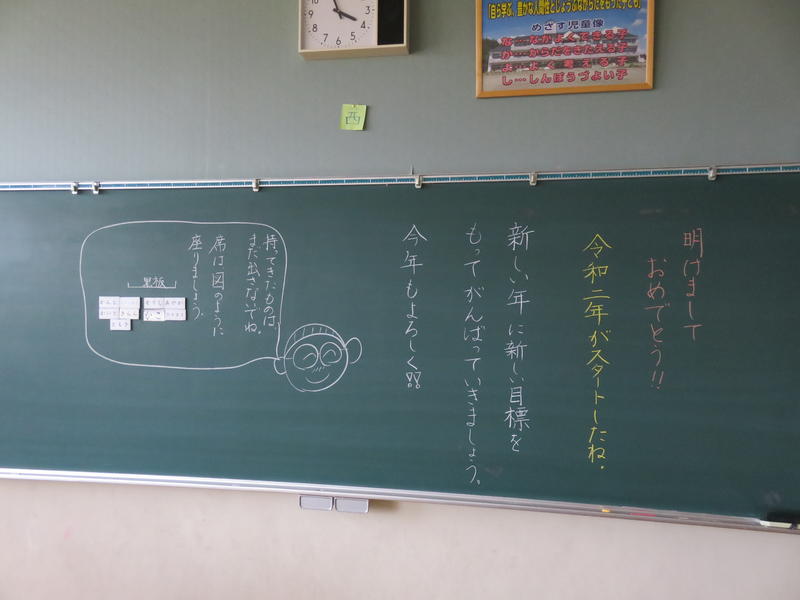 「自ら学ぶ、豊かな人間性とじょうぶなからだをもった子ども」
めざす児童像
な…なかよくできる子
か…からだをきたえる子
よ…よく考える子
し…しんぼうづよい子
西
明けまして
おめでとう!!
令和二年がスタートしたね。
新しい年に新しい目標を
もってがんばっていきましょう。
今年もよろしく!!
持ってきたものは、
まだ出さないでね。
席は図のように
座りましょう。
黒板
12
3
4
5
6
7
8